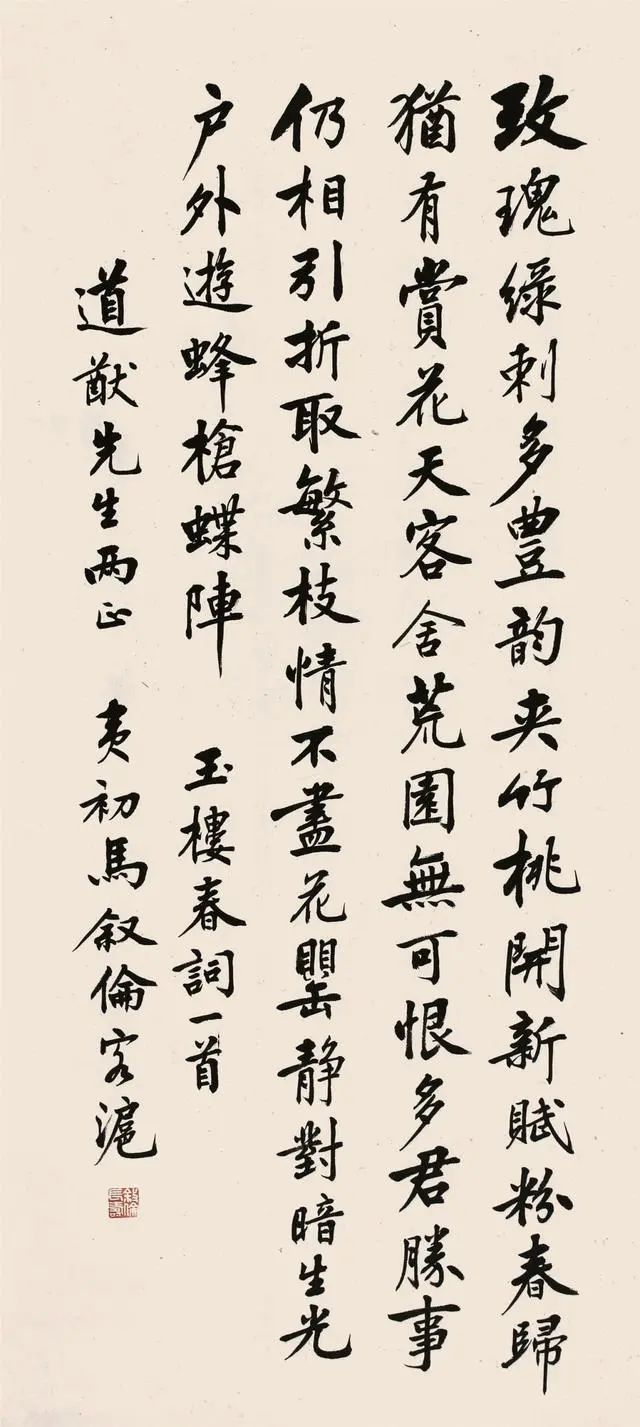 玫瑰綠刺多豊韵夾竹桃開新賦粉春歸
猶有賞花天客舍荒園無可恨多君勝事
仍相引折取繁枝情不盡花罌静對暗生光
户外遊蜂槍蝶陣
玉樓春詞一首
道猷先生兩正
夷初馬叙倫客滬
叙倫
長壽